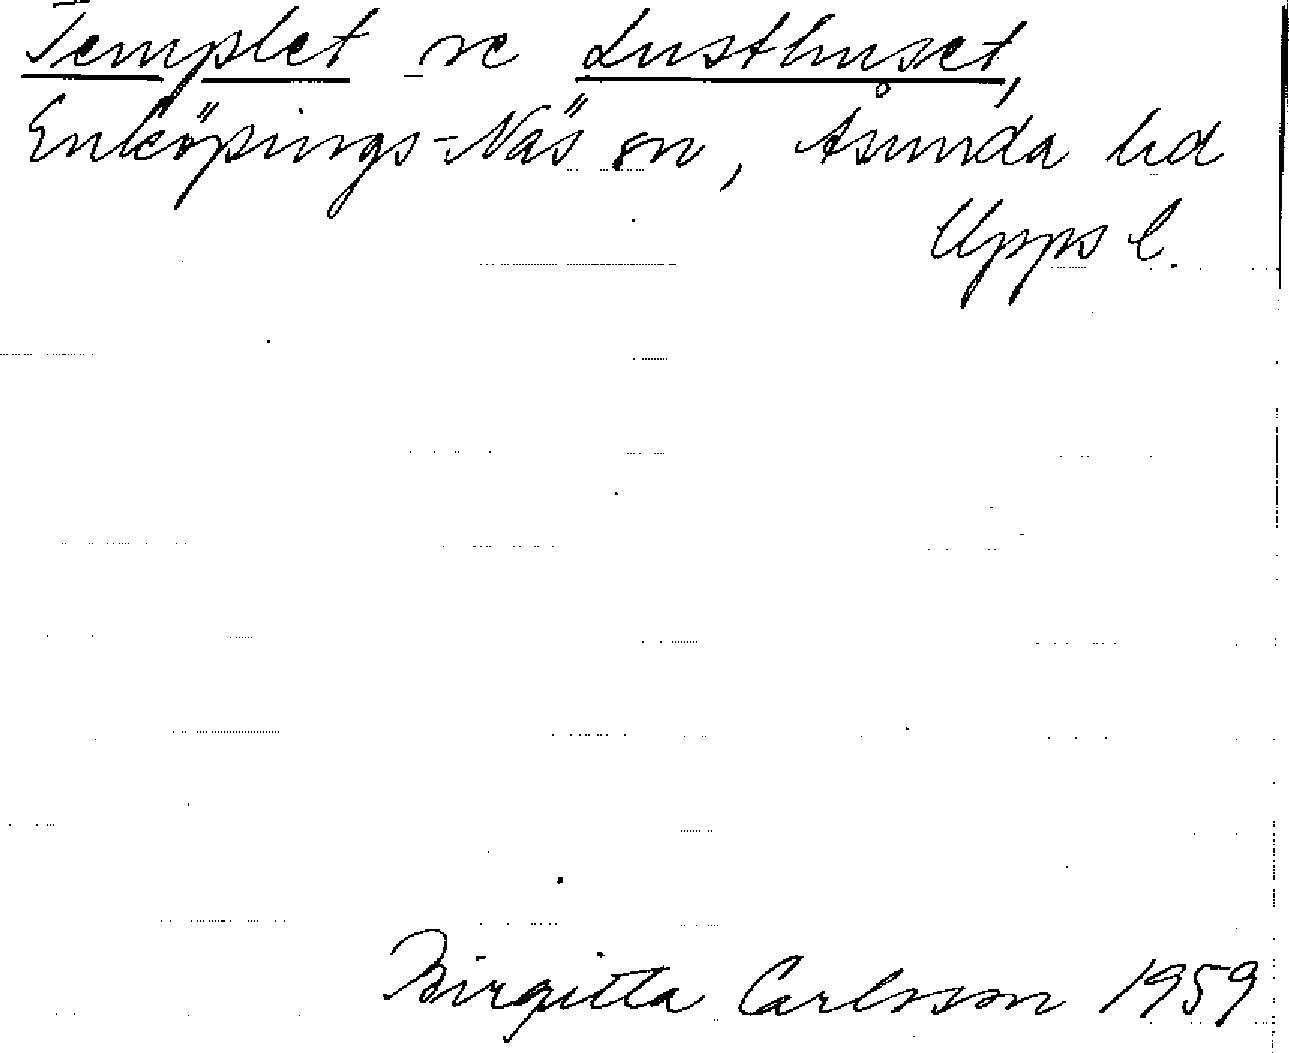 Templet se Lusthuset,
Enköpings-Näs sn, Åsunda hd
Upps l.
Birgitta Carlsson 1959